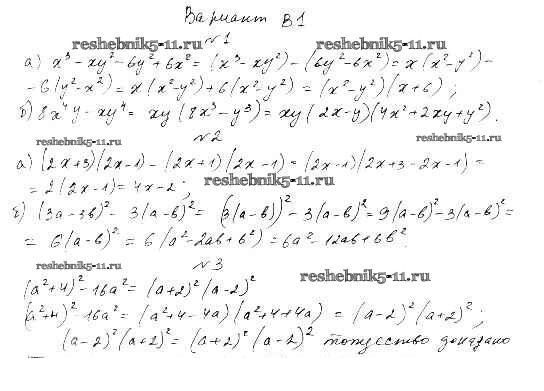 Вариант B1
reshebnik5-11.ru
№1
reshebnik5-11.ru
а) x³ - xy² - 6y² + 6x² = (x³ - xy²) - (6y² - 6x²) = x(x² - y²) -
- 6(y² - x²) = x(x² - y²) + 6(x² - y²) = (x² - y²)(x + 6);
б) 8x⁴y - xy⁴ = xy(8x³ - y³) = xy(2x - y)(4x² + 2xy + y²).
reshebnik5-11.ru
№2
reshebnik5-11.ru
а) (2x+3)(2x-1) - (2x+1)(2x-1) = (2x-1)(2x+3-2x-1) =
= 2(2x-1) = 4x-2;
reshebnik5-11.ru
б) (3a-3b)² - 3(a-b)² = (3(a-b))² - 3(a-b)² = 9(a-b)² - 3(a-b)² =
= 6(a-b)² = 6(a² - 2ab + b²) = 6a² - 12ab + 6b².
reshebnik5-11.ru
№3
reshebnik5-11.ru
(a²+4)² - 16a² = (a+2)²(a-2)²
(a²+4)² - 16a² = (a²+4-4a)(a²+4+4a) = (a-2)²(a+2)²;
(a-2)²(a+2)² = (a+2)²(a-2)² тождество доказано